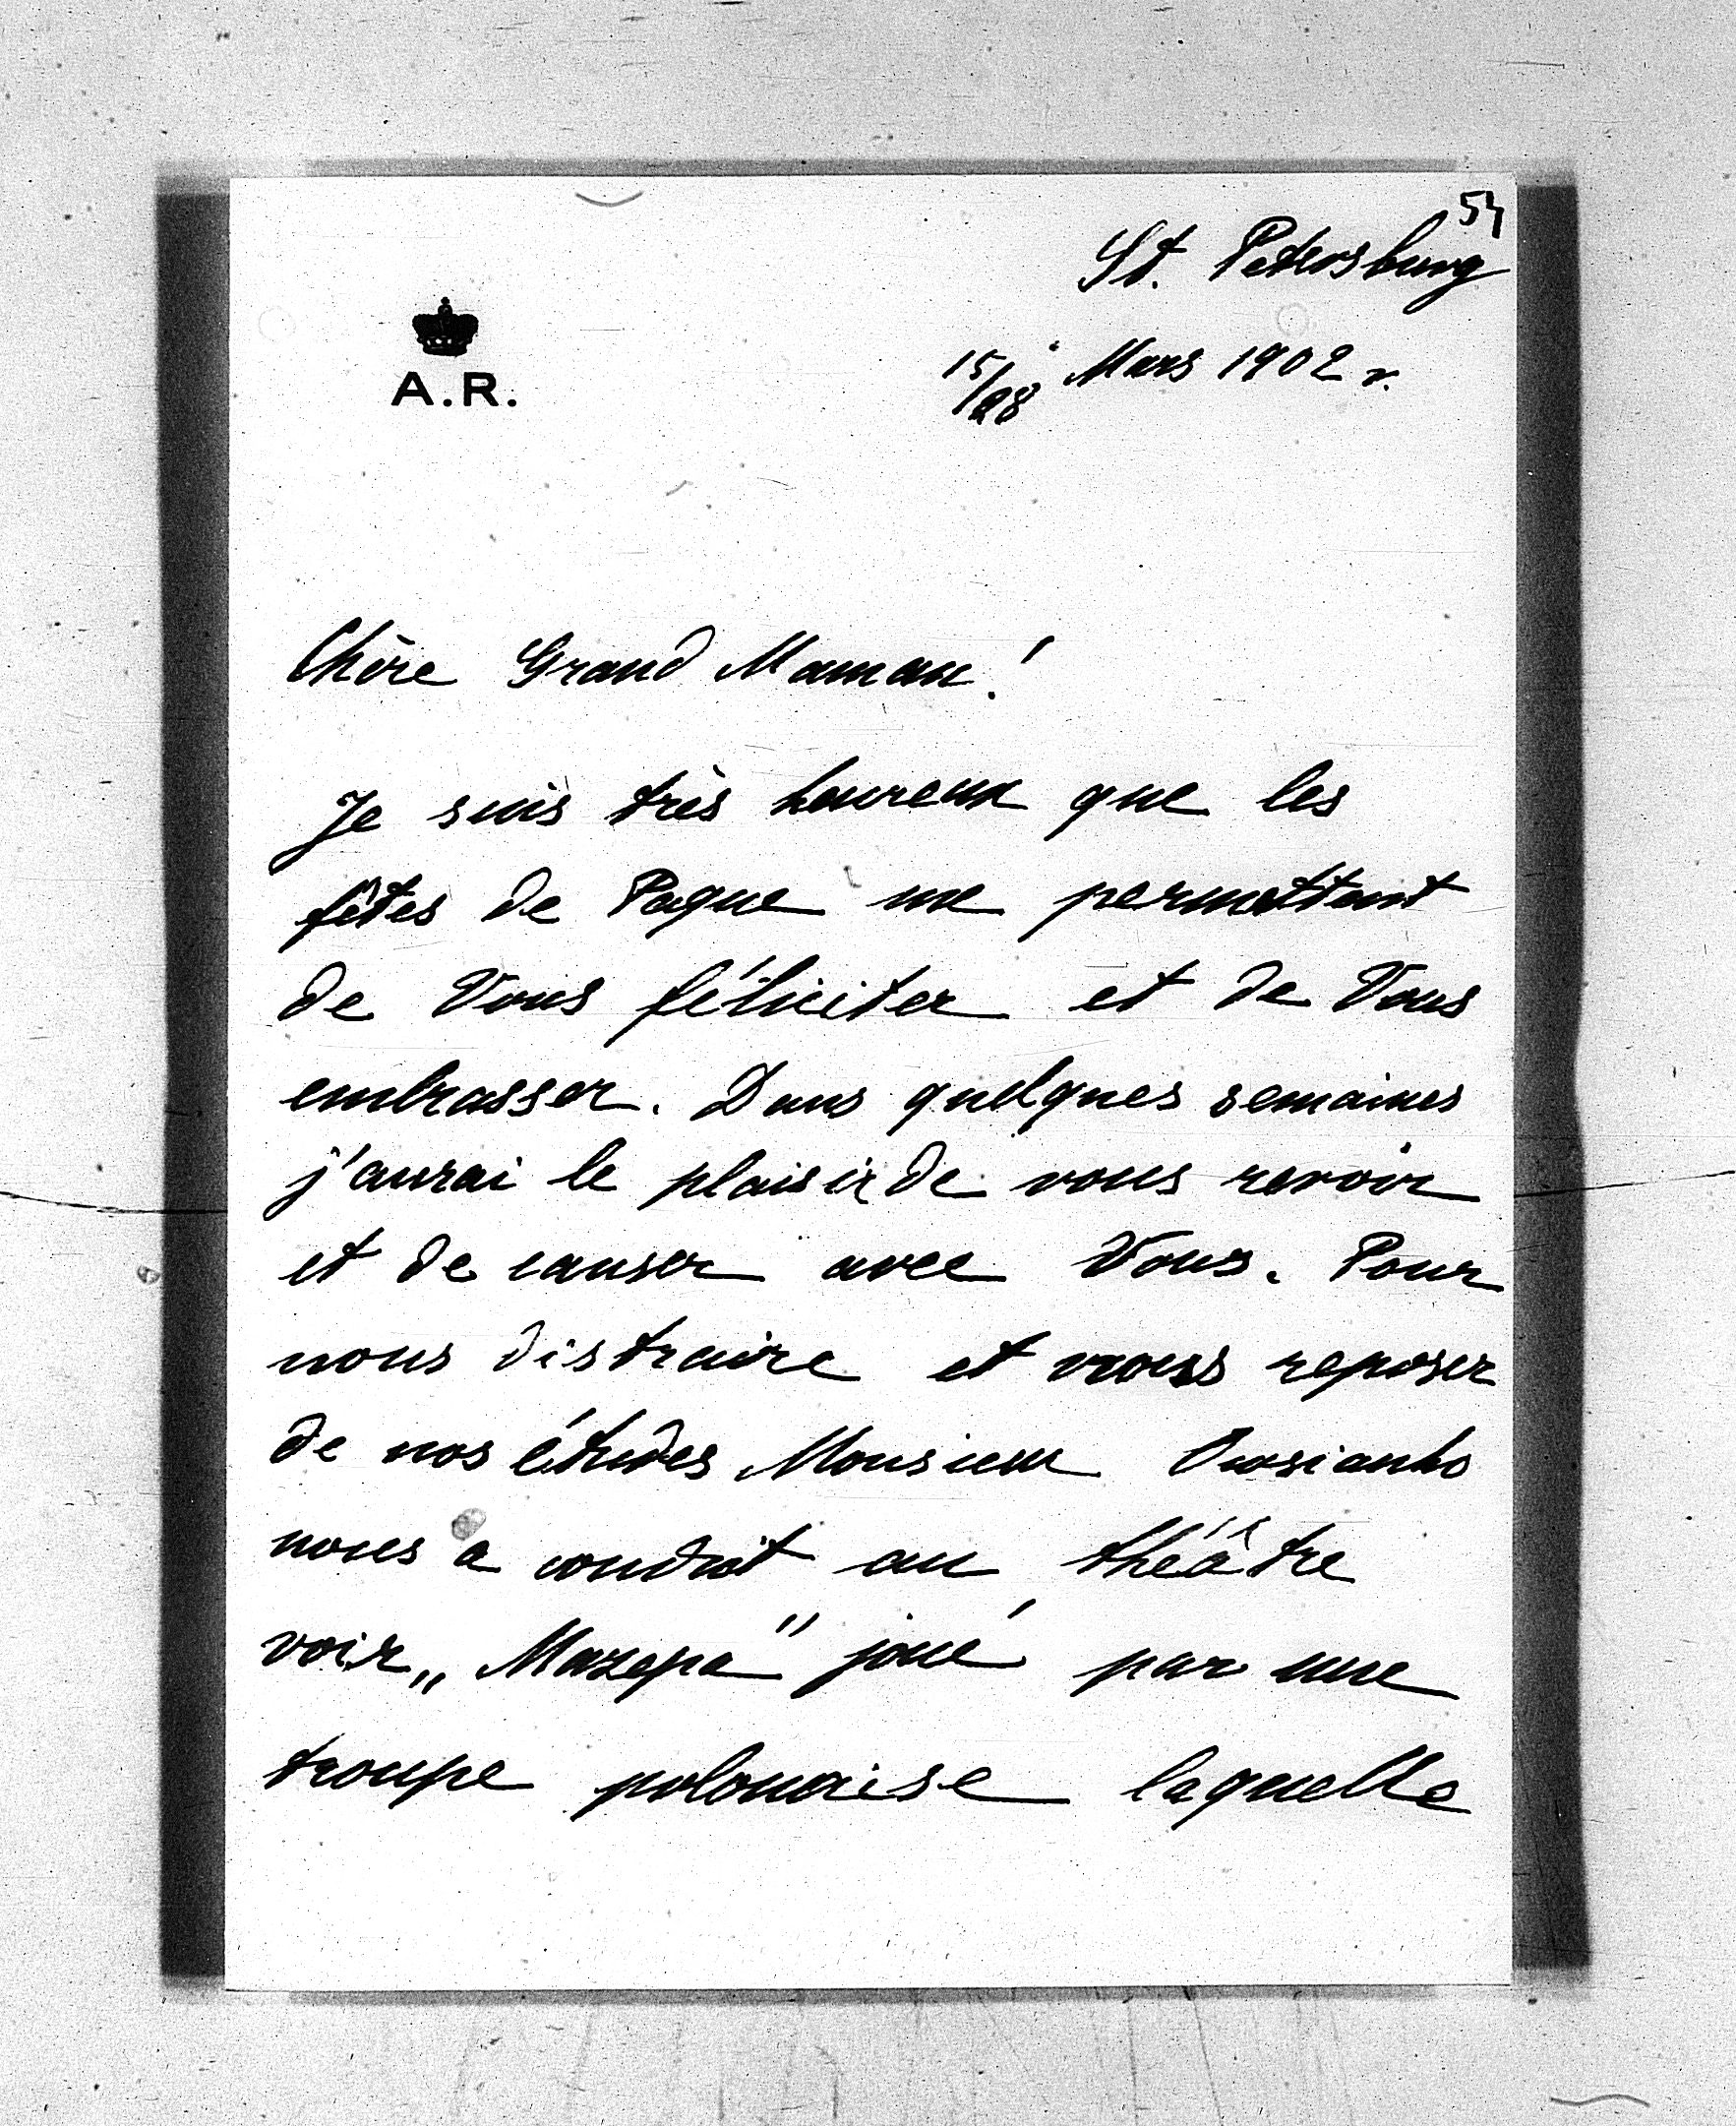 54
St. Petersburg
15/28 Mars 1902 r.
A.R.
Chère Grand Maman!
Je suis très heureux que les
fêtes de Paque me permettent
de Vous féliciter et de Vous
embrasser. Dans quelques semaines
j'aurai le plaisir de vous revoir
et de causer avec Vous. Pour
nous distraire et nous reposer
de nos études Monsieur
nous a conduit au théâtre
voir „Mazepa" joué par une
troupe polonaise laquelle